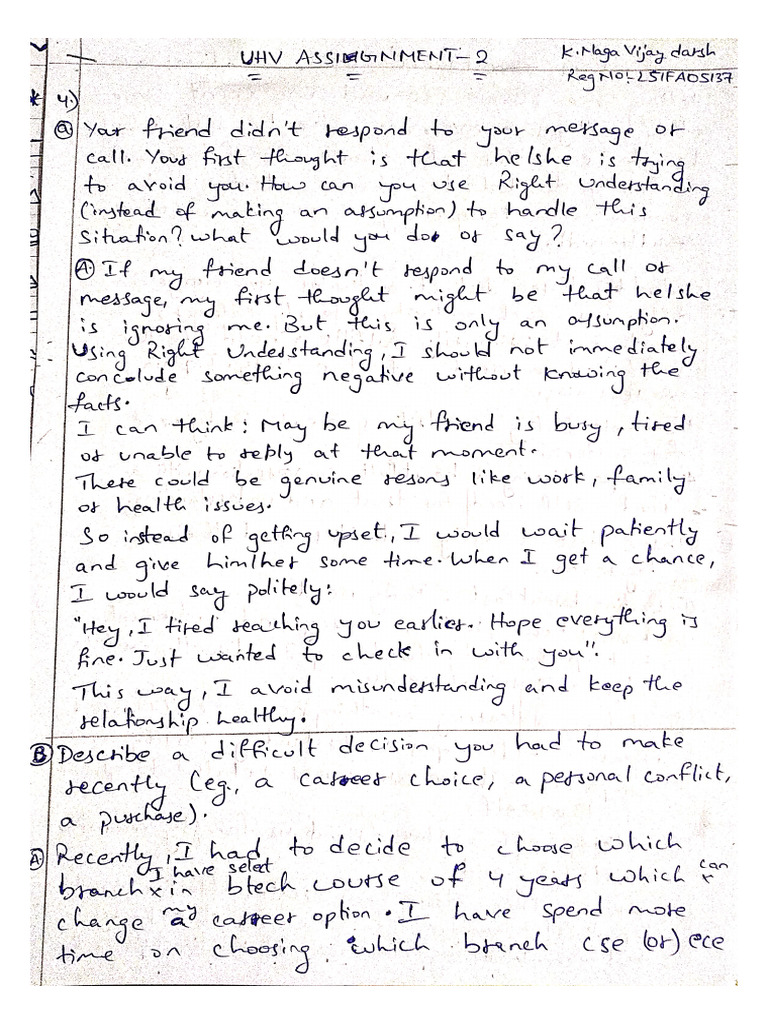 UHV ASSIGNMENT-2
K.Naga Vijay darsh
Reg No:- 251FA05137
* 4.)
(a) Your friend didn't respond to your message or
call. Your first thought is that he/she is trying
to avoid you. How can you use Right Understanding
(instead of making an assumption) to handle this
Situation? what would you do or say?
(A.) If my friend doesn't respond to my call or
message, my first thought might be that he/she
is ignoring me. But this is only an assumption.
Using Right Understanding, I should not immediately
conclude something negative without knowing the
facts.
I can think: May be my friend is busy, tired
or unable to reply at that moment.
There could be genuine resons like work, family
or health issues.
So instead of getting upset, I would wait patiently
and give him/her some time. When I get a chance,
I would say politely:
"Hey, I tired reaching you earlier. Hope everything is
fine. Just wanted to check in with you".
This way, I avoid misunderstanding and keep the
relationship healthy.
(B) Describe a difficult decision you had to make
recently (eg., a career choice, a personal conflict,
a purchase).
(A.) Recently, I had to decide to choose which
branch x I have selet in btech course of 4 years which x can
change my career option. I have spend more
time on choosing which branch cse (or) ece